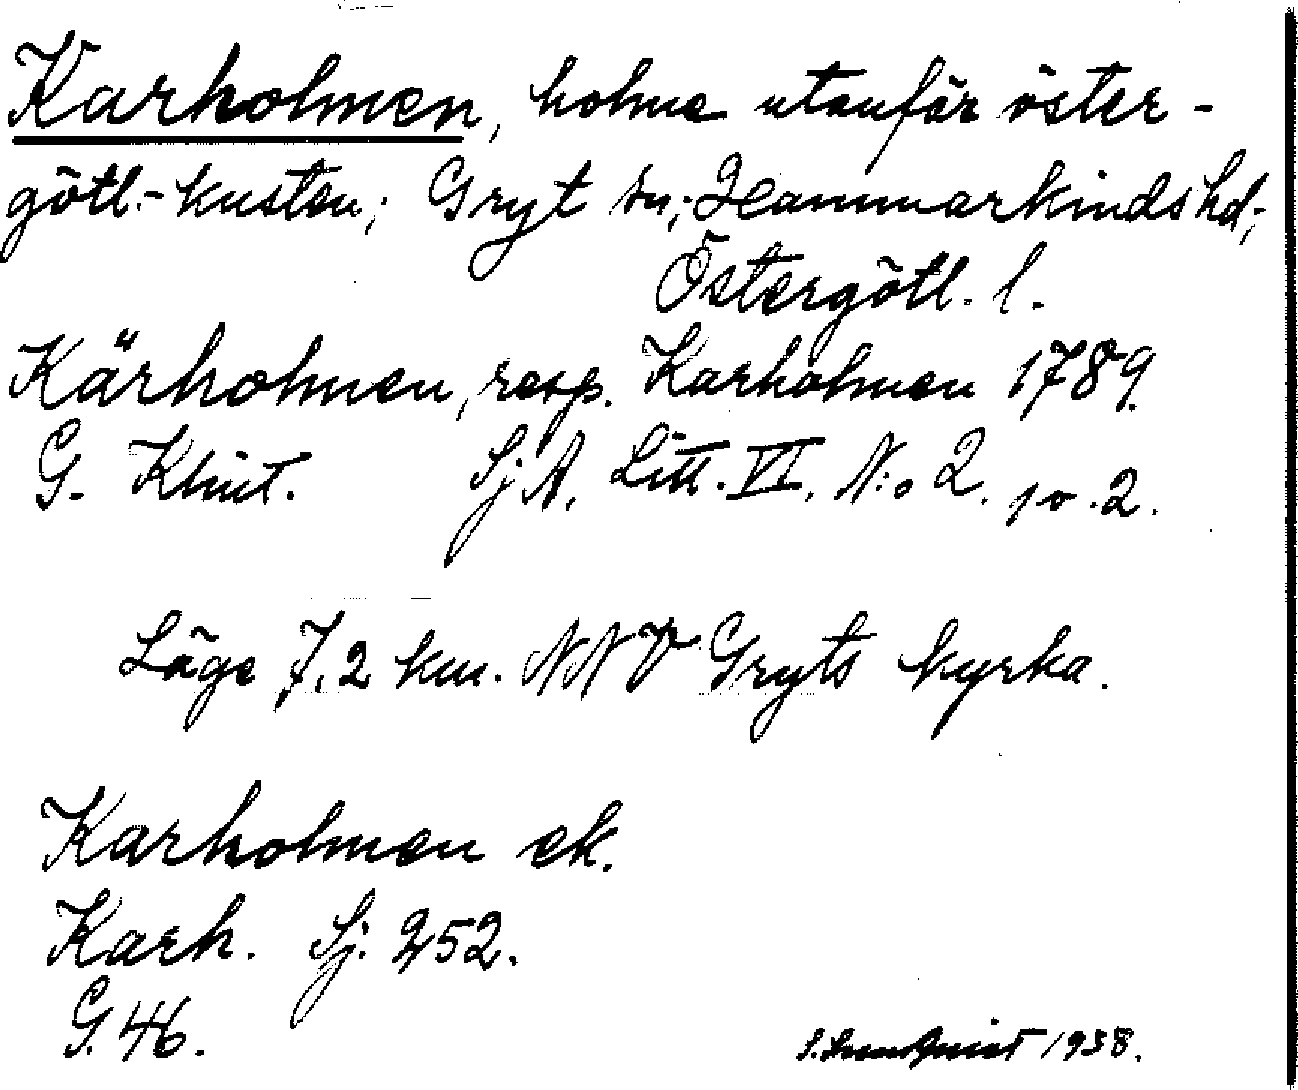 Karholmen, holme utanför öster-
götl.-kusten; Gryt sn; Hammarkinds hd;
Östergötl. l.
Kärholmen, resp. Karholmen 1789.
G. Klint. Sj A. Litt. VI. N:o 2. pv. 2.
Läge 7,2 km. NNV Gryts kyrka.
Karholmen ek.
Karh. Sj. 252.
G. 46.
1938.